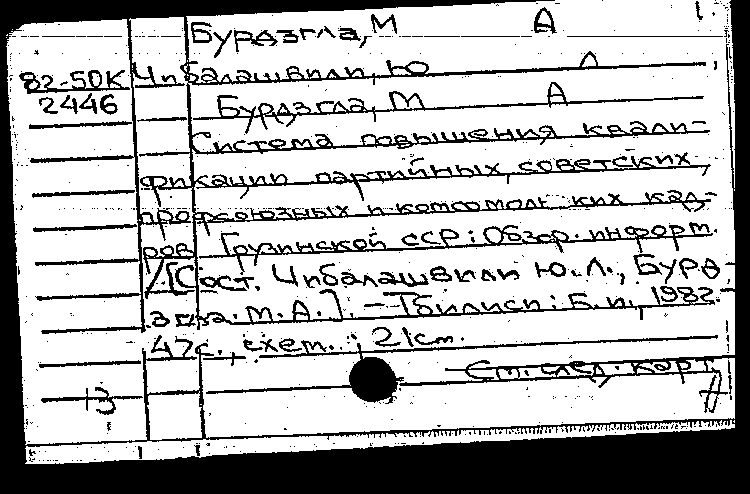 Бурдзгла, М А 1.
82-50К Чибалашвили, Ю Л
2446 Бурдзгла, М А
Система повышения квали-
фикации партийных, советских,
профсоюзных и комсомольских кад-
ров Грузинской ССР: Обзор. информ.
/[Сост. Чибалашвили Ю.Л., Бурд-
згла М.А.]. – Тбилиси: Б. и., 1982.-
47с., схем.; 21см.
См. след. карт.
13